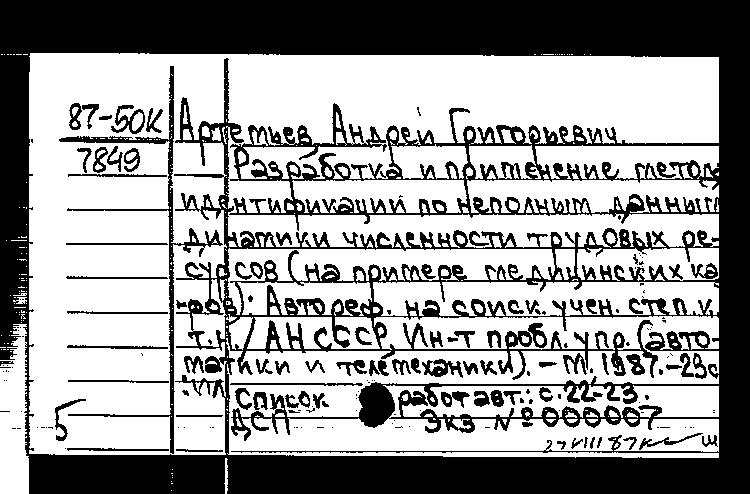 87-50К
7849
Артемьев, Андрей Григорьевич.
Разработка и применение метода
идентификации по неполным данным
динамики численности трудовых ре-
сурсов (на примере медицинских ка
-ров): Автореф. на соиск. учен. степ. к.
т.н. / АН СССР, Ин-т пробл. упр. (авто-
матики и телемеханики). – М. 1987. – 23с
: ил
Список работ авт.: с. 22-23.
ДСП Экз № 000007
5
27 VIII 87